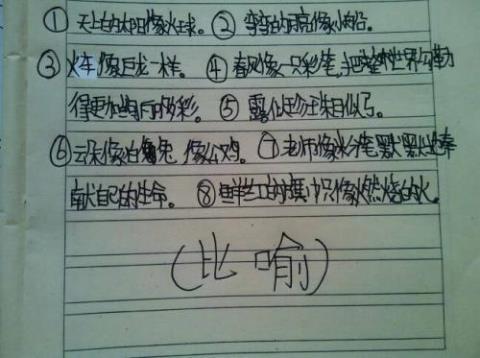 ①天上的太阳像火球。②弯弯的月亮像小船。
③火车像巨龙一样。④春风像一只彩笔,把整个世界勾勒
得更加绚丽多彩。⑤露似珍珠月似弓。
⑥云朵像白兔 像公鸡。⑦老师像粉笔默默地奉
献自己的生命。⑧鲜红的旗帜像燃烧的火。
(比喻)